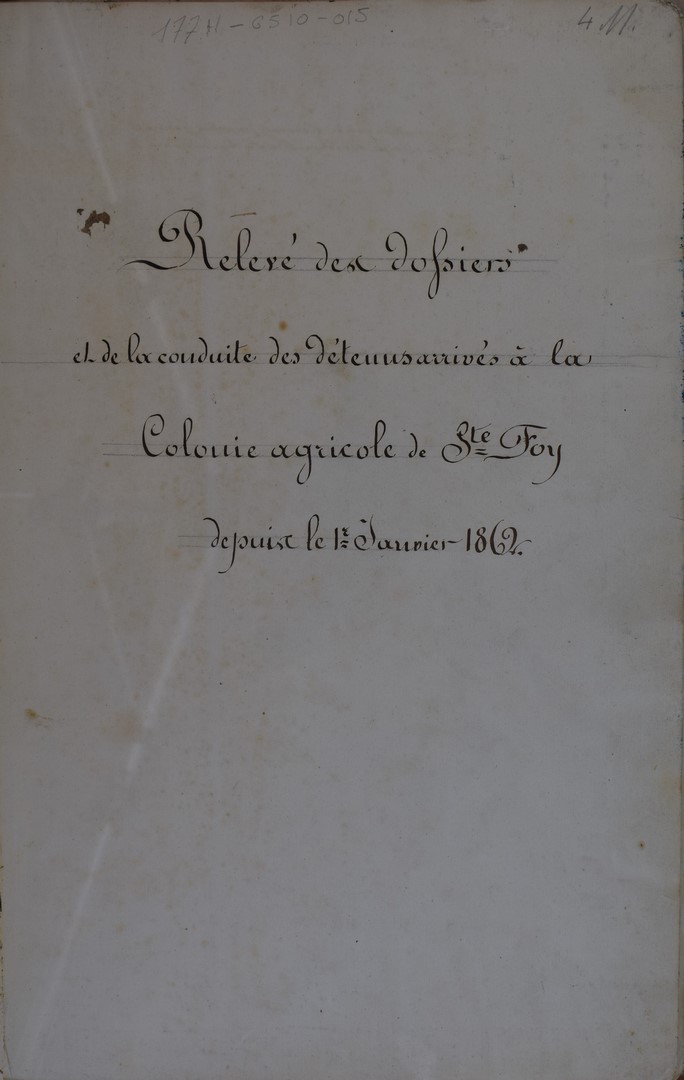 177 H - 6510 - 015
4 M.
Relevé des dossiers
et de la conduite des détenus arrivés à la
Colonie agricole de Ste Foy
depuis le 1er Janvier 1862.